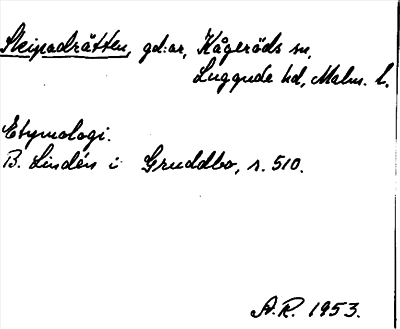 Skipadråtten, gd:ar, Kågeröds sn,
Luggude hd, Malm. l.
Etymologi.
B. Lindén i Gruddbo, s. 510.
A.R. 1953.